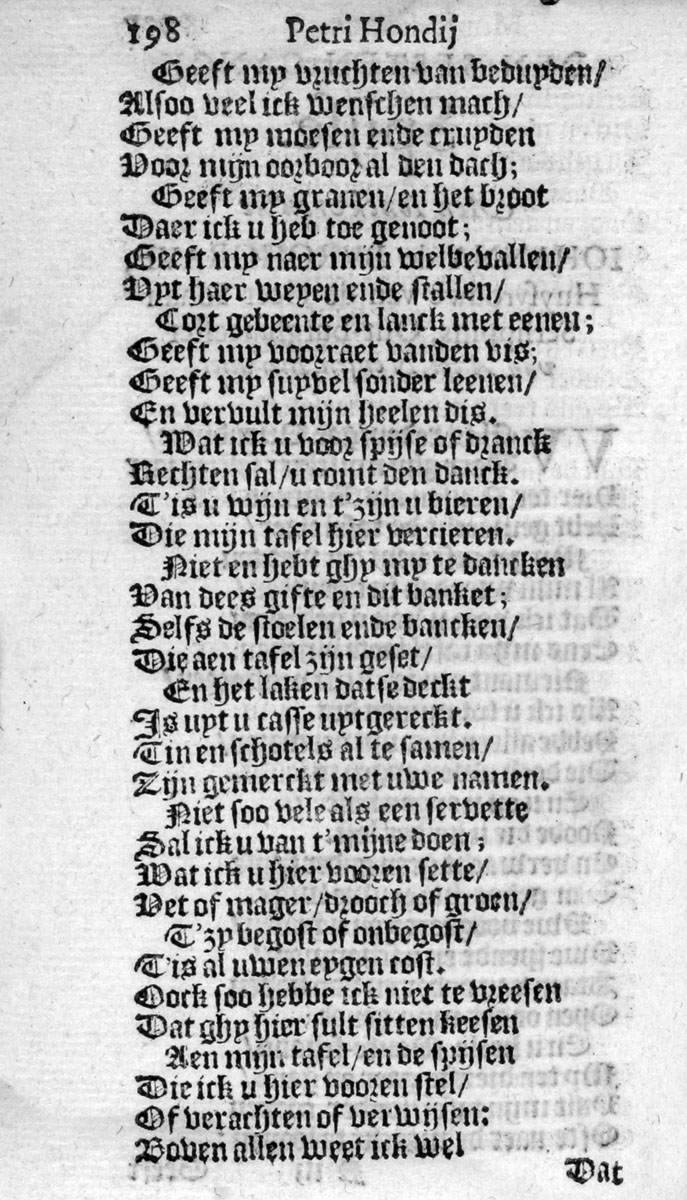 198 Petri Hondij
Geeft my vruchten van beduyden/
Alsoo veel ick wenschen mach/
Geeft my moesen ende cruyden
Voor mijn oorboor al den dach;
Geeft my granen/en het broot
Daer ick u heb toe genoot;
Geeft my naer mijn welbevallen/
Vyt haer weyen ende stallen/
Cort gebeente en lanck met eenen;
Geeft my voorraet vanden vis;
Geeft my suyvel sonder leenen/
En vervult mijn heelen dis.
Wat ick u voor spijse of dranck
Rechten sal/u comt den danck.
T'is u wijn en t'zijn u bieren/
Die mijn tafel hier vercieren.
Niet en hebt ghy my te dancken
Van dees gifte en dit banket;
Selfs de stoelen ende bancken/
Die aen tafel zijn geset/
En het laken datse deckt
Is uyt u casse uytgereckt.
Tin en schotels al te samen/
Zijn gemerckt met uwe namen.
Niet soo vele als een servette
Sal ick u van t'mijne doen;
Wat ick u hier vooren sette/
Vet of mager/drooch of groen/
T'zy begost of onbegost/
T'is al uwen eygen cost.
Oock soo hebbe ick niet te vreesen
Dat ghy hier sult sitten keesen
Aen mijn tafel/en de spijsen
Die ick u hier vooren stel/
Of verachten of verwijsen:
Boven allen weet ick wel
Dat